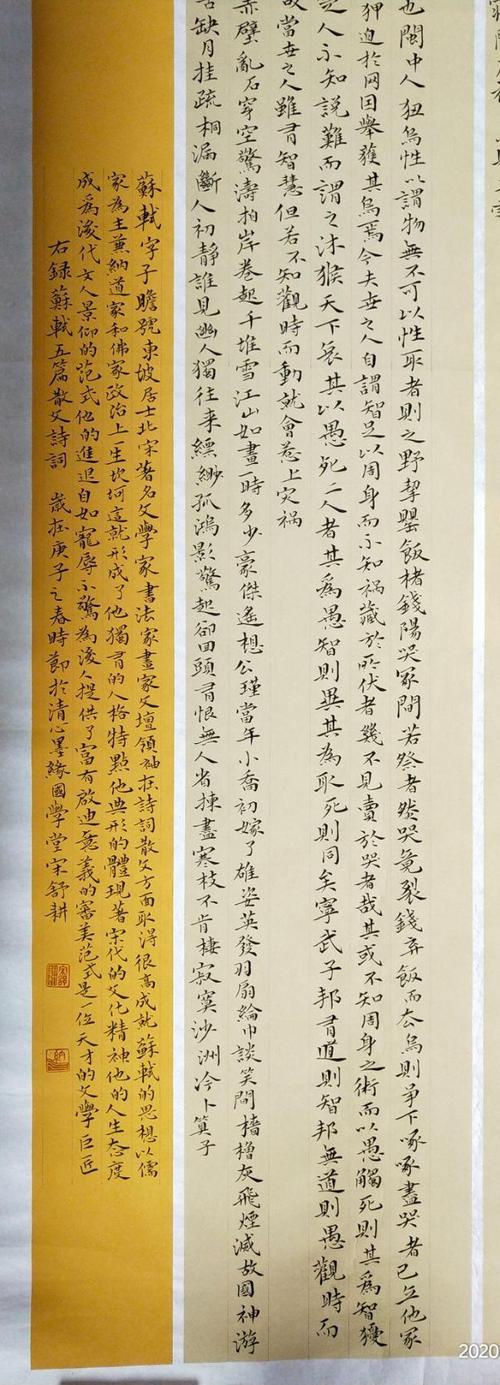 也閩中人狃烏性以謂物無不可以性取者則之野挈罌飯楮錢陽哭冢間若祭者然哭竟裂錢弃飯而去烏則爭下啄啄盡哭者已立他冢
狎迫於网因舉獲其烏焉今夫世之人自謂智足以周身而不知禍藏於所伏者幾不見賣於哭者哉其或不知周身之術而以愚觸死則其為智猶
之人不知說難而謂之沐猴天下哀其以愚死二人者其為愚智則異其為取死則同矣寧武子邦有道則智邦無道則愚觀時而
故當世之人雖有智慧但若不知觀時而動就會惹上灾禍
赤壁亂石穿空驚濤拍岸卷起千堆雪江山如畫一時多少豪傑遙想公瑾當年小喬初嫁了雄姿英發羽扇綸巾談笑間檣櫓灰飛煙滅故國神游
缺月挂疏桐漏斷人初靜誰見幽人獨往来縹緲孤鴻影驚起卻回頭有恨無人省揀盡寒枝不肯棲寂寞沙洲冷卜算子
蘇軾字子瞻號東坡居士北宋著名文學家書法家畫家文壇領袖在詩詞散文方面取得很高成就蘇軾的思想以儒
家為主兼納道家和佛家政治上一生坎坷這就形成了他獨有的人格特點他典形的體現著宋代的文化精神他的人生态度
成為後代文人景仰的范式他的進退自如寵辱不驚為後人提供了富有啟迪意義的審美范式是一位天才的文學巨匠
右録蘇軾五篇散文詩詞 歲在庚子之春時節於清心墨緣國學堂宋舒耕
2020